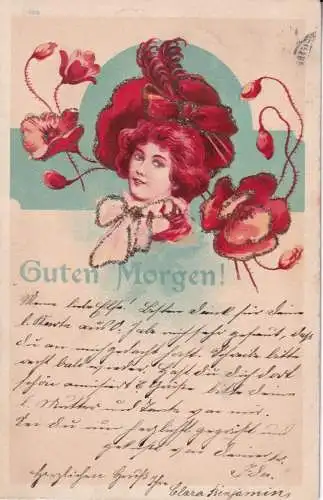 Guten Morgen!
Meine liebe Else! Besten Dank für deine
l. Karte aus O. hab mich sehr gefreut, daß
du an mich gedacht hast. Schreibe bitte
recht bald wieder. Hast du dich dort
schön amüsiert? Grüße bitte deine
l. Mutter und Tante von mir.
Sei du nun herzlichst gegrüßt und
geküßt von deiner
herzlichen Gruß
Clara Benjamin